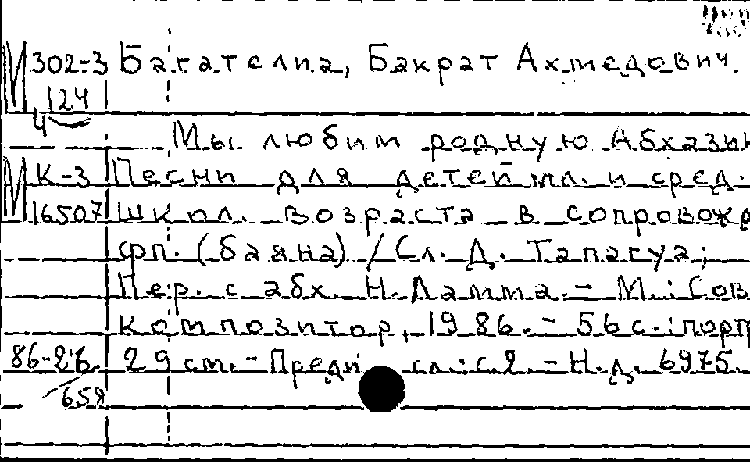 М 302-3 Багателиа, Бакрат Ахмедович.
124
4
Мы любим родную Абхази
М К-3 Песни для детей мл. и сред.
16507 школ. возраста в сопровож
фп. (баяна) / Сл. Д. Тапагуа;
Пер. с абх. Н. Ламма. - М.: Сов
композитор, 1986. - 56 с.: порт
86-26 29 см. - Преди сл.: с. 2. - Н.д. 6975.
658